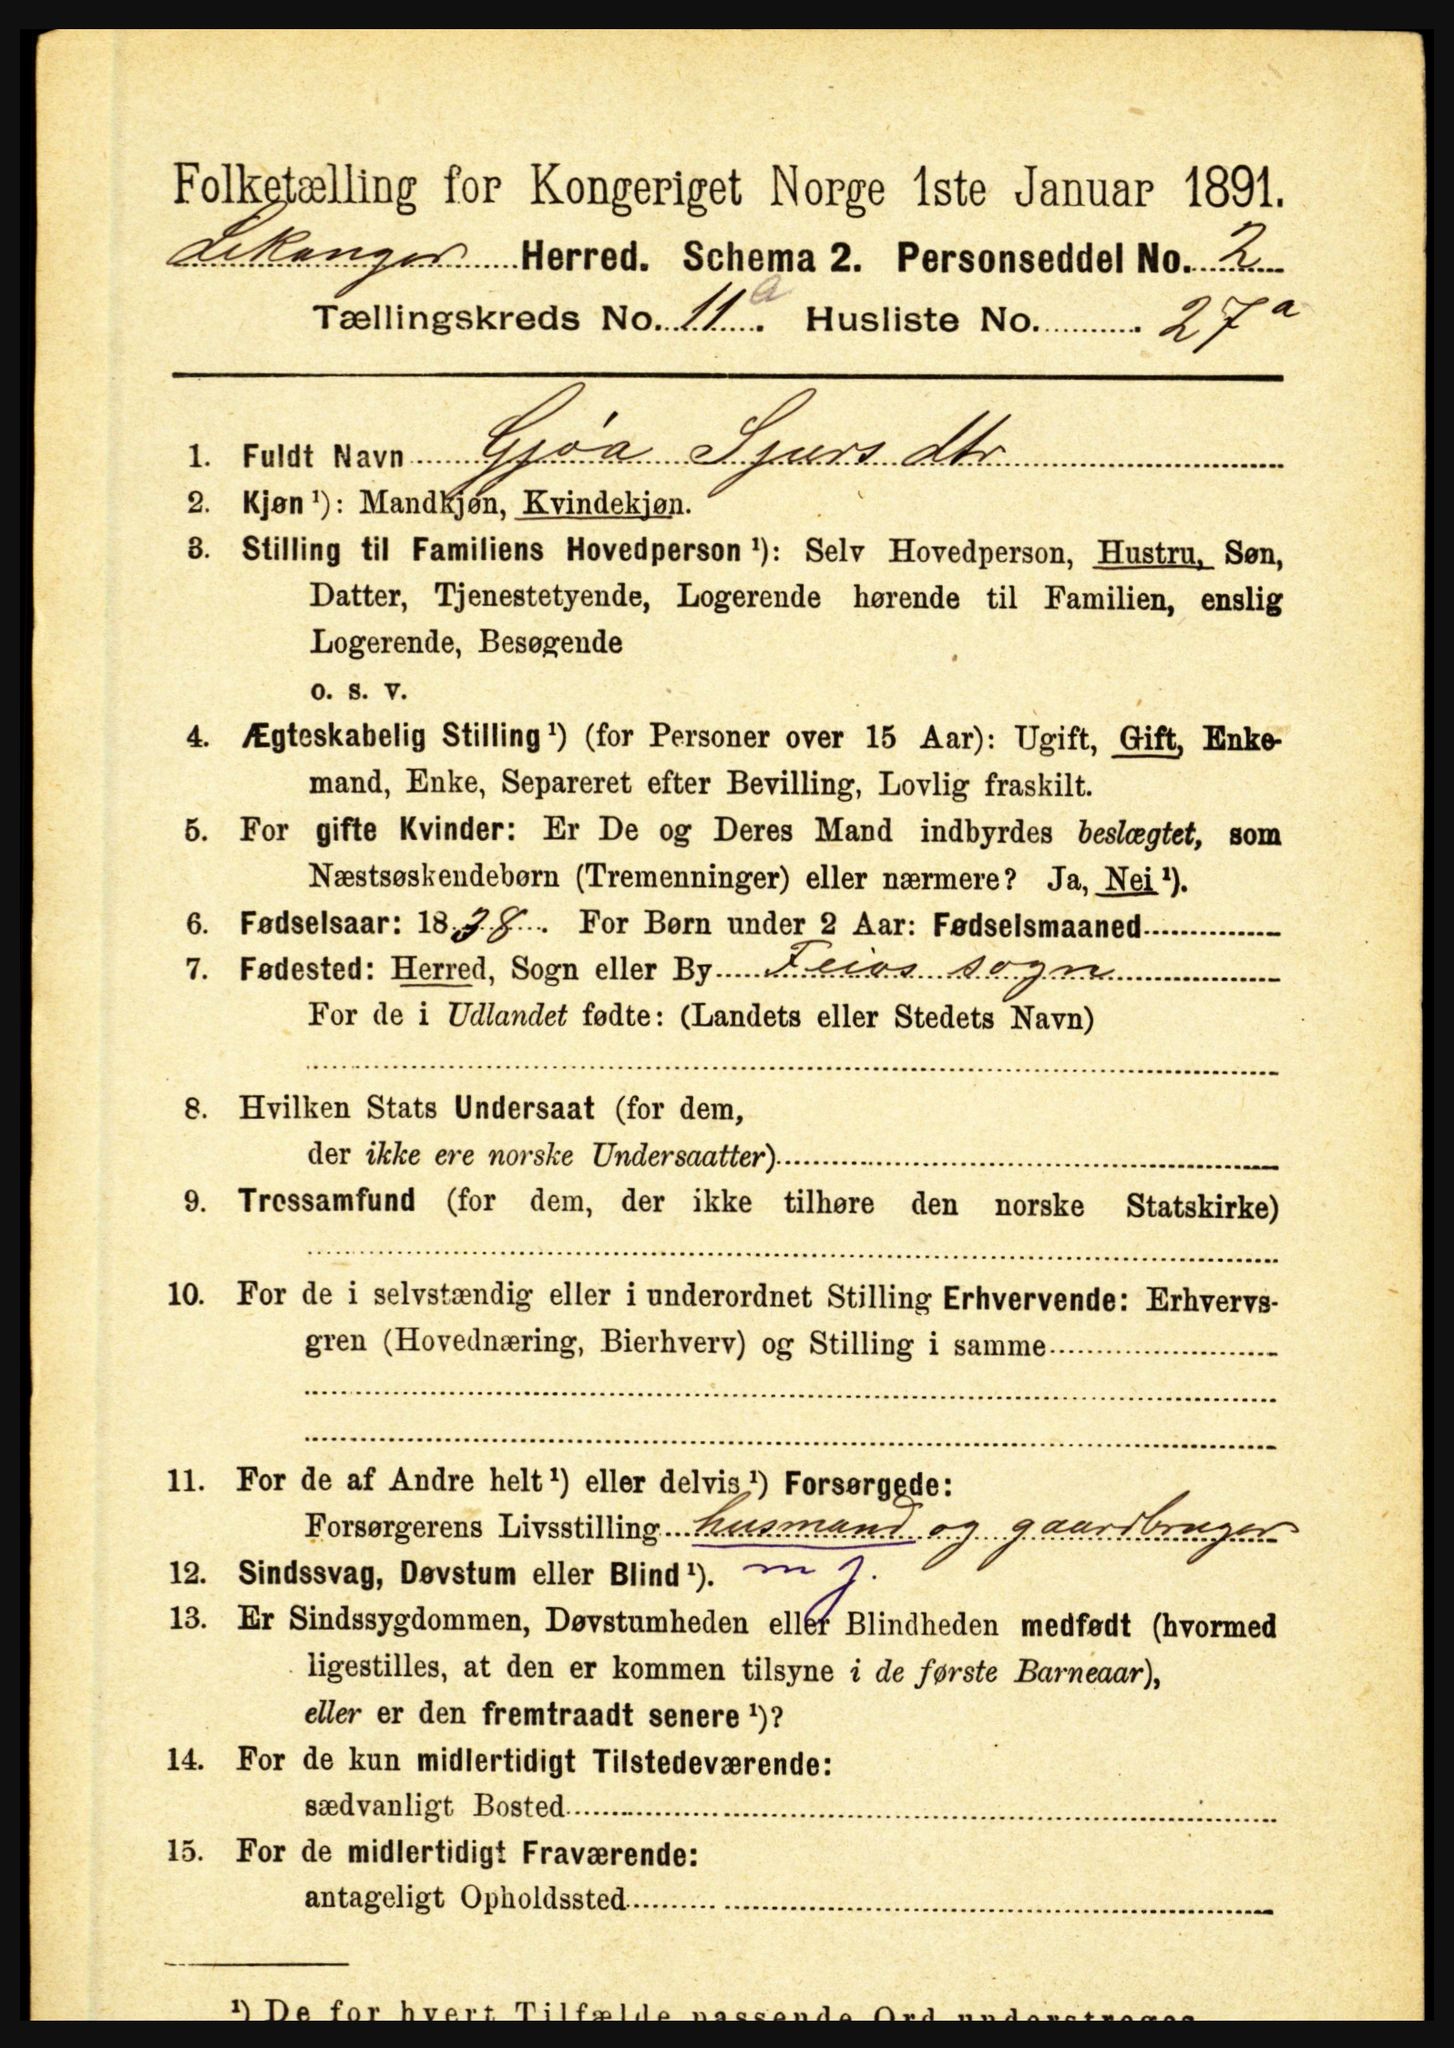 Folketælling for Kongeriget Norge 1ste Januar 1891.
Lekanger Herred. Schema 2. Personseddel No. 2
Tællingskreds No. 11 a. Husliste No. 27 a
1. Fuldt Navn Gjøa Sjursdtr
2. Kjøn ¹): Mandkjøn, Kvindekjøn.
3. Stilling til Familiens Hovedperson ¹): Selv Hovedperson, Hustru, Søn,
Datter, Tjenestetyende, Logerende hørende til Familien, enslig
Logerende, Besøgende
o. s. v.
4. Ægteskabelig Stilling ¹) (for Personer over 15 Aar): Ugift, Gift, Enke-
mand, Enke, Separeret efter Bevilling, Lovlig fraskilt.
5. For gifte Kvinder: Er De og Deres Mand indbyrdes beslægtet, som
Næstsøskendebørn (Tremenninger) eller nærmere? Ja, Nei ¹).
6. Fødselsaar: 1838. For Børn under 2 Aar: Fødselsmaaned
7. Fødested: Herred, Sogn eller By Feios sogn
For de i Udlandet fødte: (Landets eller Stedets Navn)
8. Hvilken Stats Undersaat (for dem,
der ikke ere norske Undersaatter)
9. Trossamfund (for dem, der ikke tilhøre den norske Statskirke)
10. For de i selvstændig eller i underordnet Stilling Erhvervende: Erhvervs-
gren (Hovednæring, Bierhverv) og Stilling i samme
11. For de af Andre helt ¹) eller delvis ¹) Forsørgede:
Forsørgerens Livsstilling husmand og gaardbruger
12. Sindssvag, Døvstum eller Blind ¹). m j.
13. Er Sindssygdommen, Døvstumheden eller Blindheden medfødt (hvormed
ligestilles, at den er kommen tilsyne i de første Barneaar),
eller er den fremtraadt senere ¹)?
14. For de kun midlertidigt Tilstedeværende:
sædvanligt Bosted
15. For de midlertidigt Fraværende:
antageligt Opholdssted
¹) De for hvert Tilfælde passende Ord understreges